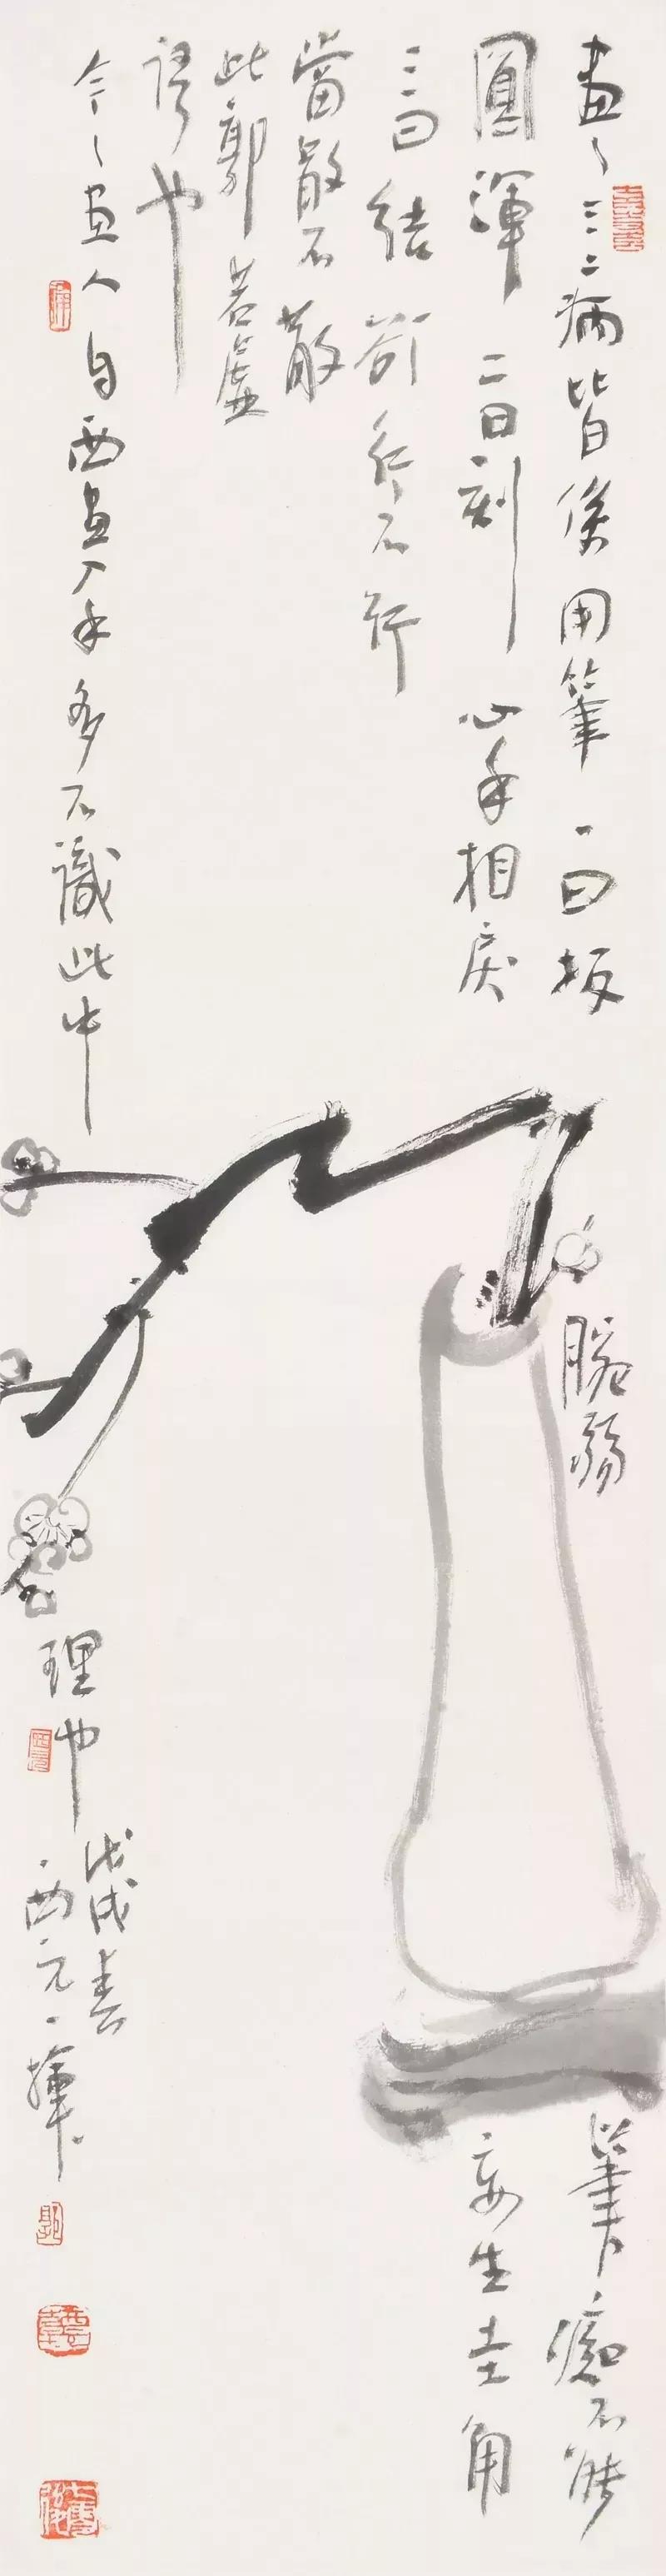 畫之三病皆係用筆一曰板腕弱筆癡不能
圓渾二曰刻心手相戾妄生圭角
三曰結欲行不行
當散不散
此郭若虛
語也
今之畫人自西畫入手多不識此中理也
戊戌春
西元一揮